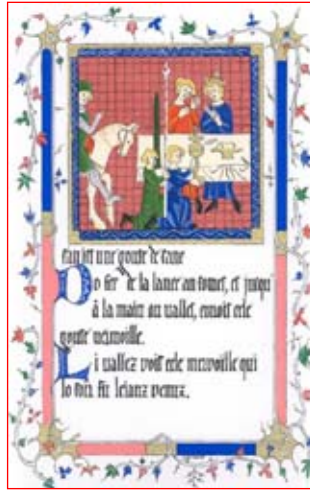 une goute de
Do fer de la lance an somet, et jusqu'
à la main au vallet, coroit cele
goute vermoille.
Li vallez voit cele mervoille qui
lo soir fu leianz venuz.